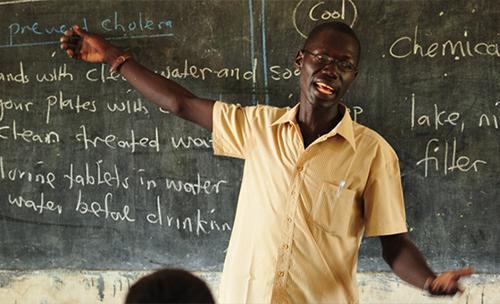 prevent cholera
ands with clean water and so
your plates with c
clean treated wat
lorine tablets in water
water before drinking
Cool
Chemical
lake, ni
filter